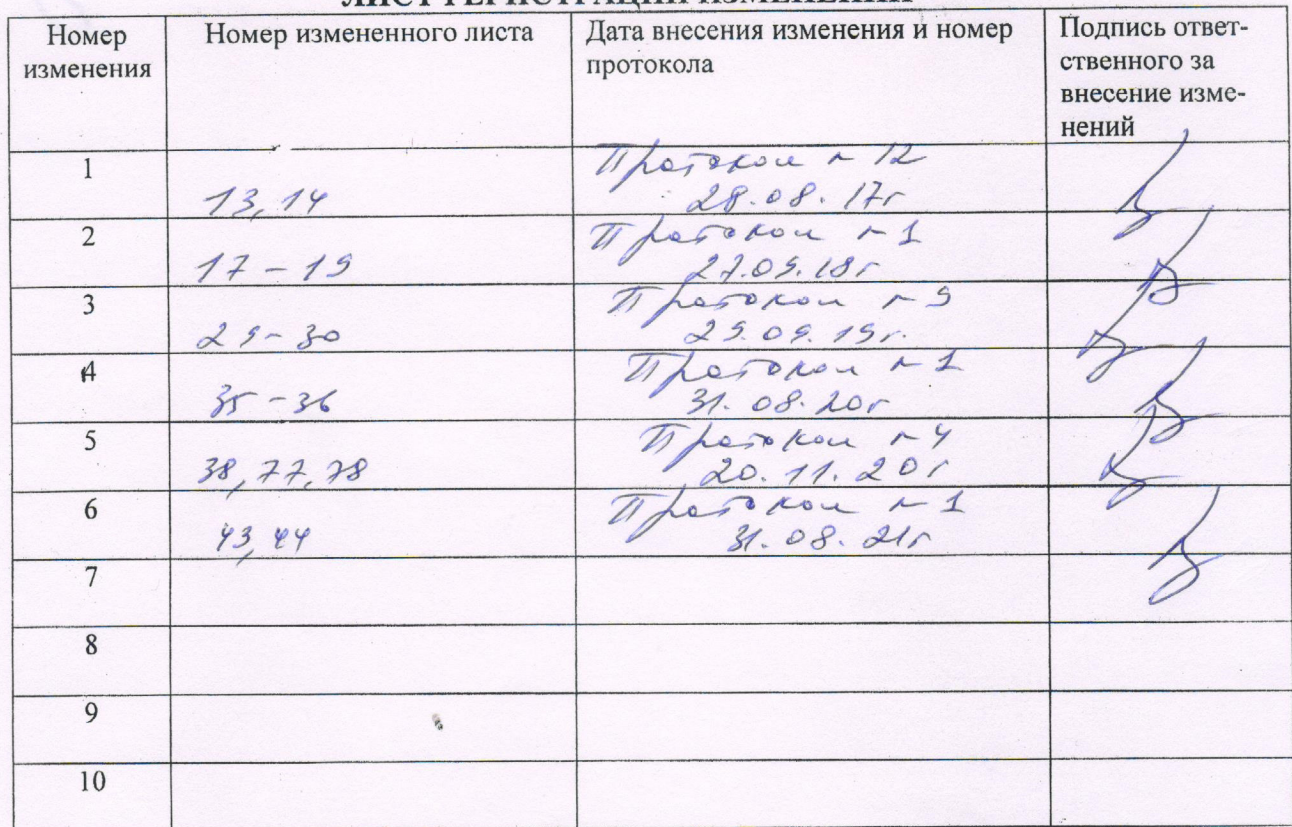 ЛИСТ РЕГИСТРАЦИИ ИЗМЕНЕНИЙ
Номер изменения
Номер измененного листа
Дата внесения изменения и номер протокола
Подпись ответ-
ственного за
внесение изме-
нений
1
13, 14
Протокол № 12
28.08.17г
2
17-19
Протокол №1
27.09.18г
3
29-30
Протокол №9
29.09.19г.
4
35-36
Протокол №1
31.08.20г
5
38, 77, 78
Протокол №4
20.11.20г
6
43, 44
Протокол №1
31.08.21г
7
8
9
10